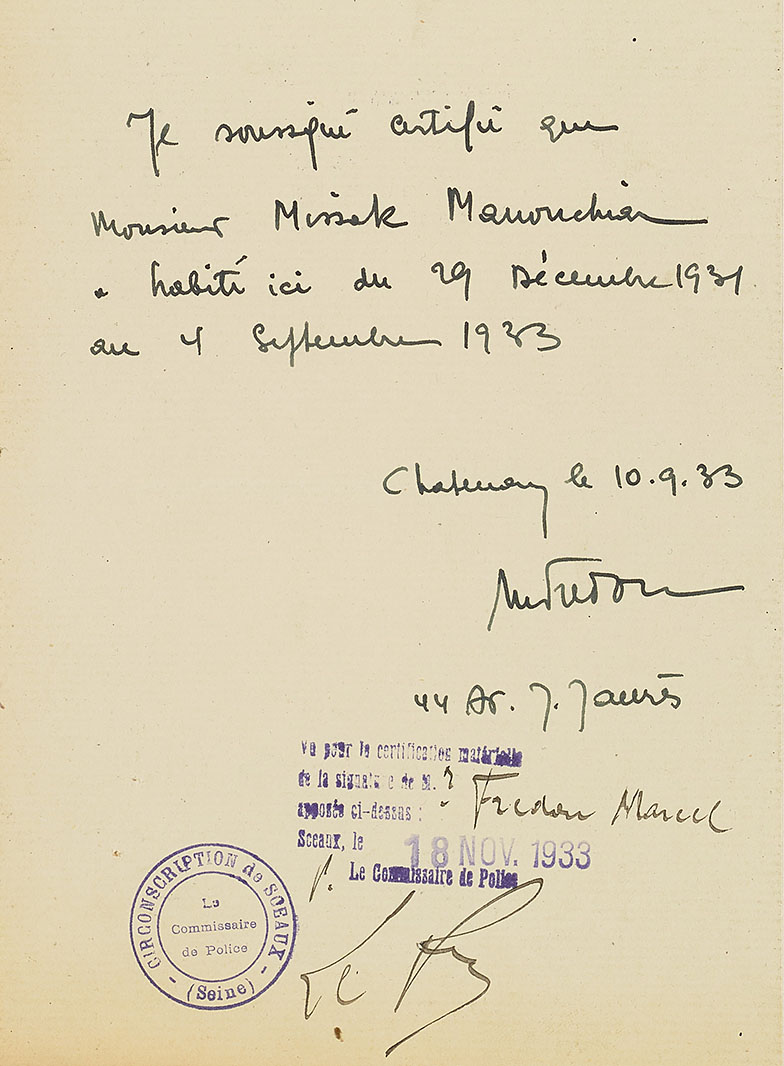 Je soussigné certifie que
Monsieur Missak Manouchian
a habité ici du 29 Décembre 1931
au 4 Septembre 1933
Chatenay le 10.9.33
44 Av. J. Jaurès
Vu pour la certification matérielle
de la signature de M.
Fredon Marcel
apposée ci-dessus :
Sceaux, le 18 NOV. 1933
p. Le Commissaire de Police
CIRCONSCRIPTION de SCEAUX
Le
Commissaire
de Police
(Seine)